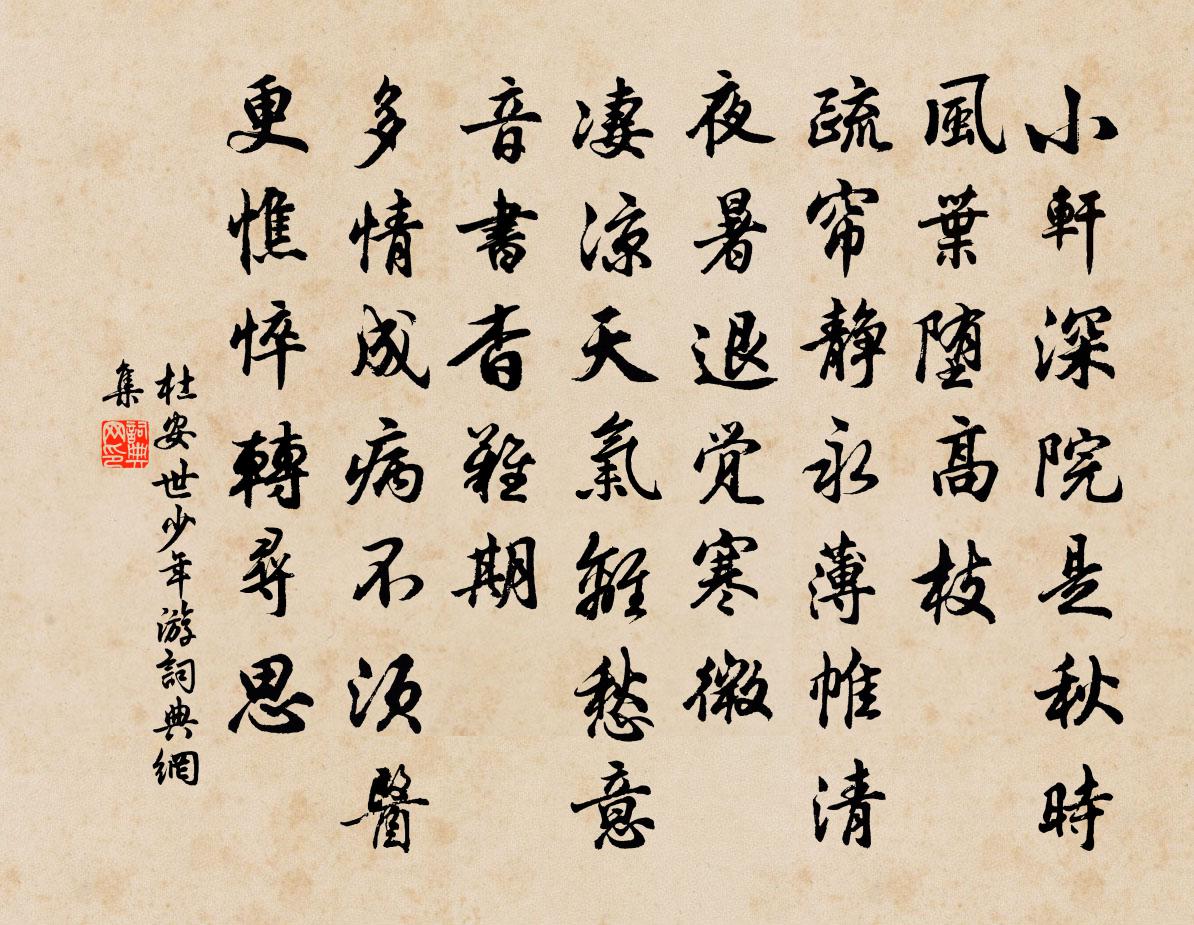 小軒深院是秋時
風葉墮高枝
疏帘静永薄帷清
夜暑退覚寒微
凄涼天氣離愁意
音書杳難期
多情成病不須醫
更憔悴轉尋思
杜安世少年游詞典網
集
詞典
网印